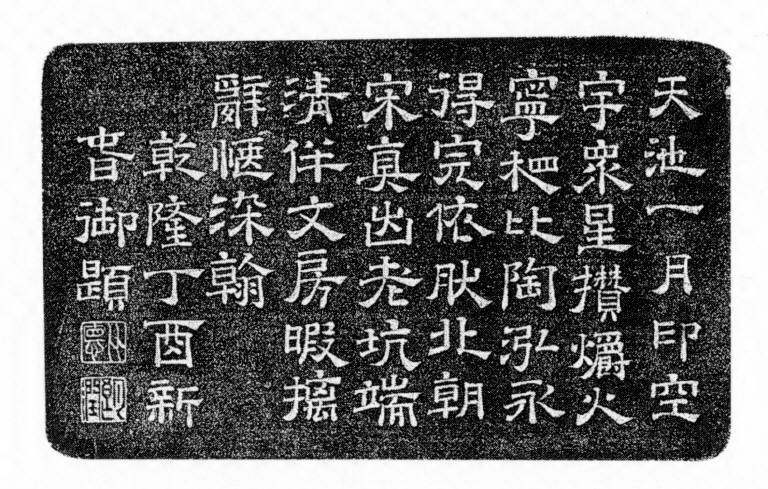 天池一月印空
宇眾星攢爝火
寧杷比陶泓永
得完依耿北朝
宋真出老坑端
清伴文房暇摛
辭愜深翰
乾隆丁酉新
旾御題